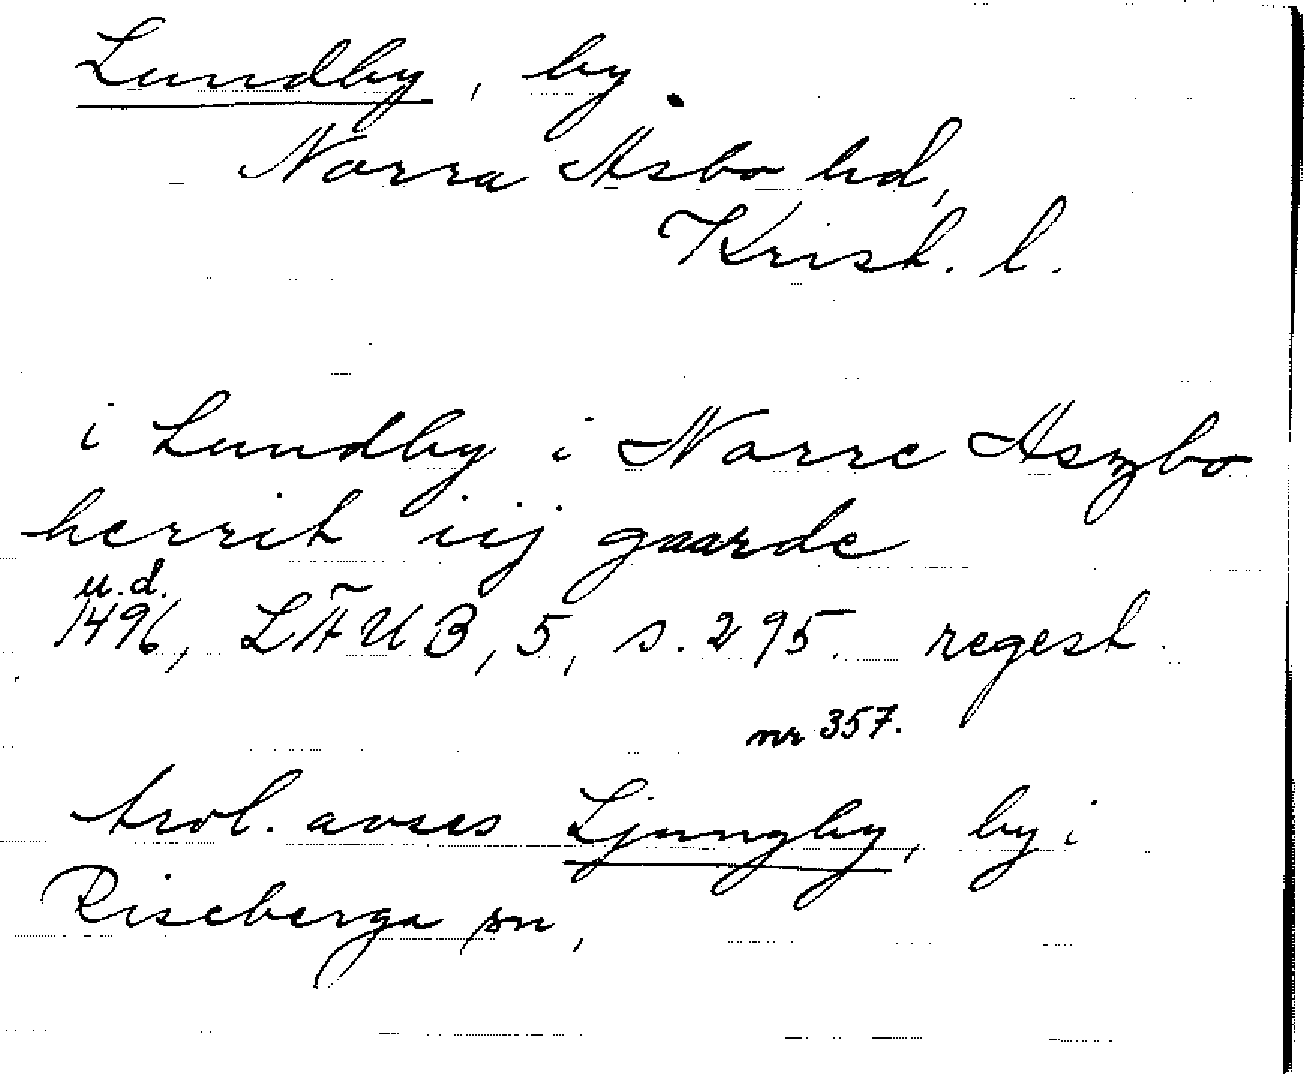 Lundby, by.
Norra Åsbo hd,
Krist. l.
i Lundby i Norre Aszbo
herrit iij gaarde
u.d.
1496, LÄUB, 5, s. 295. regest
nr 357.
trol. avses Ljungby, by i
Riseberga sn,